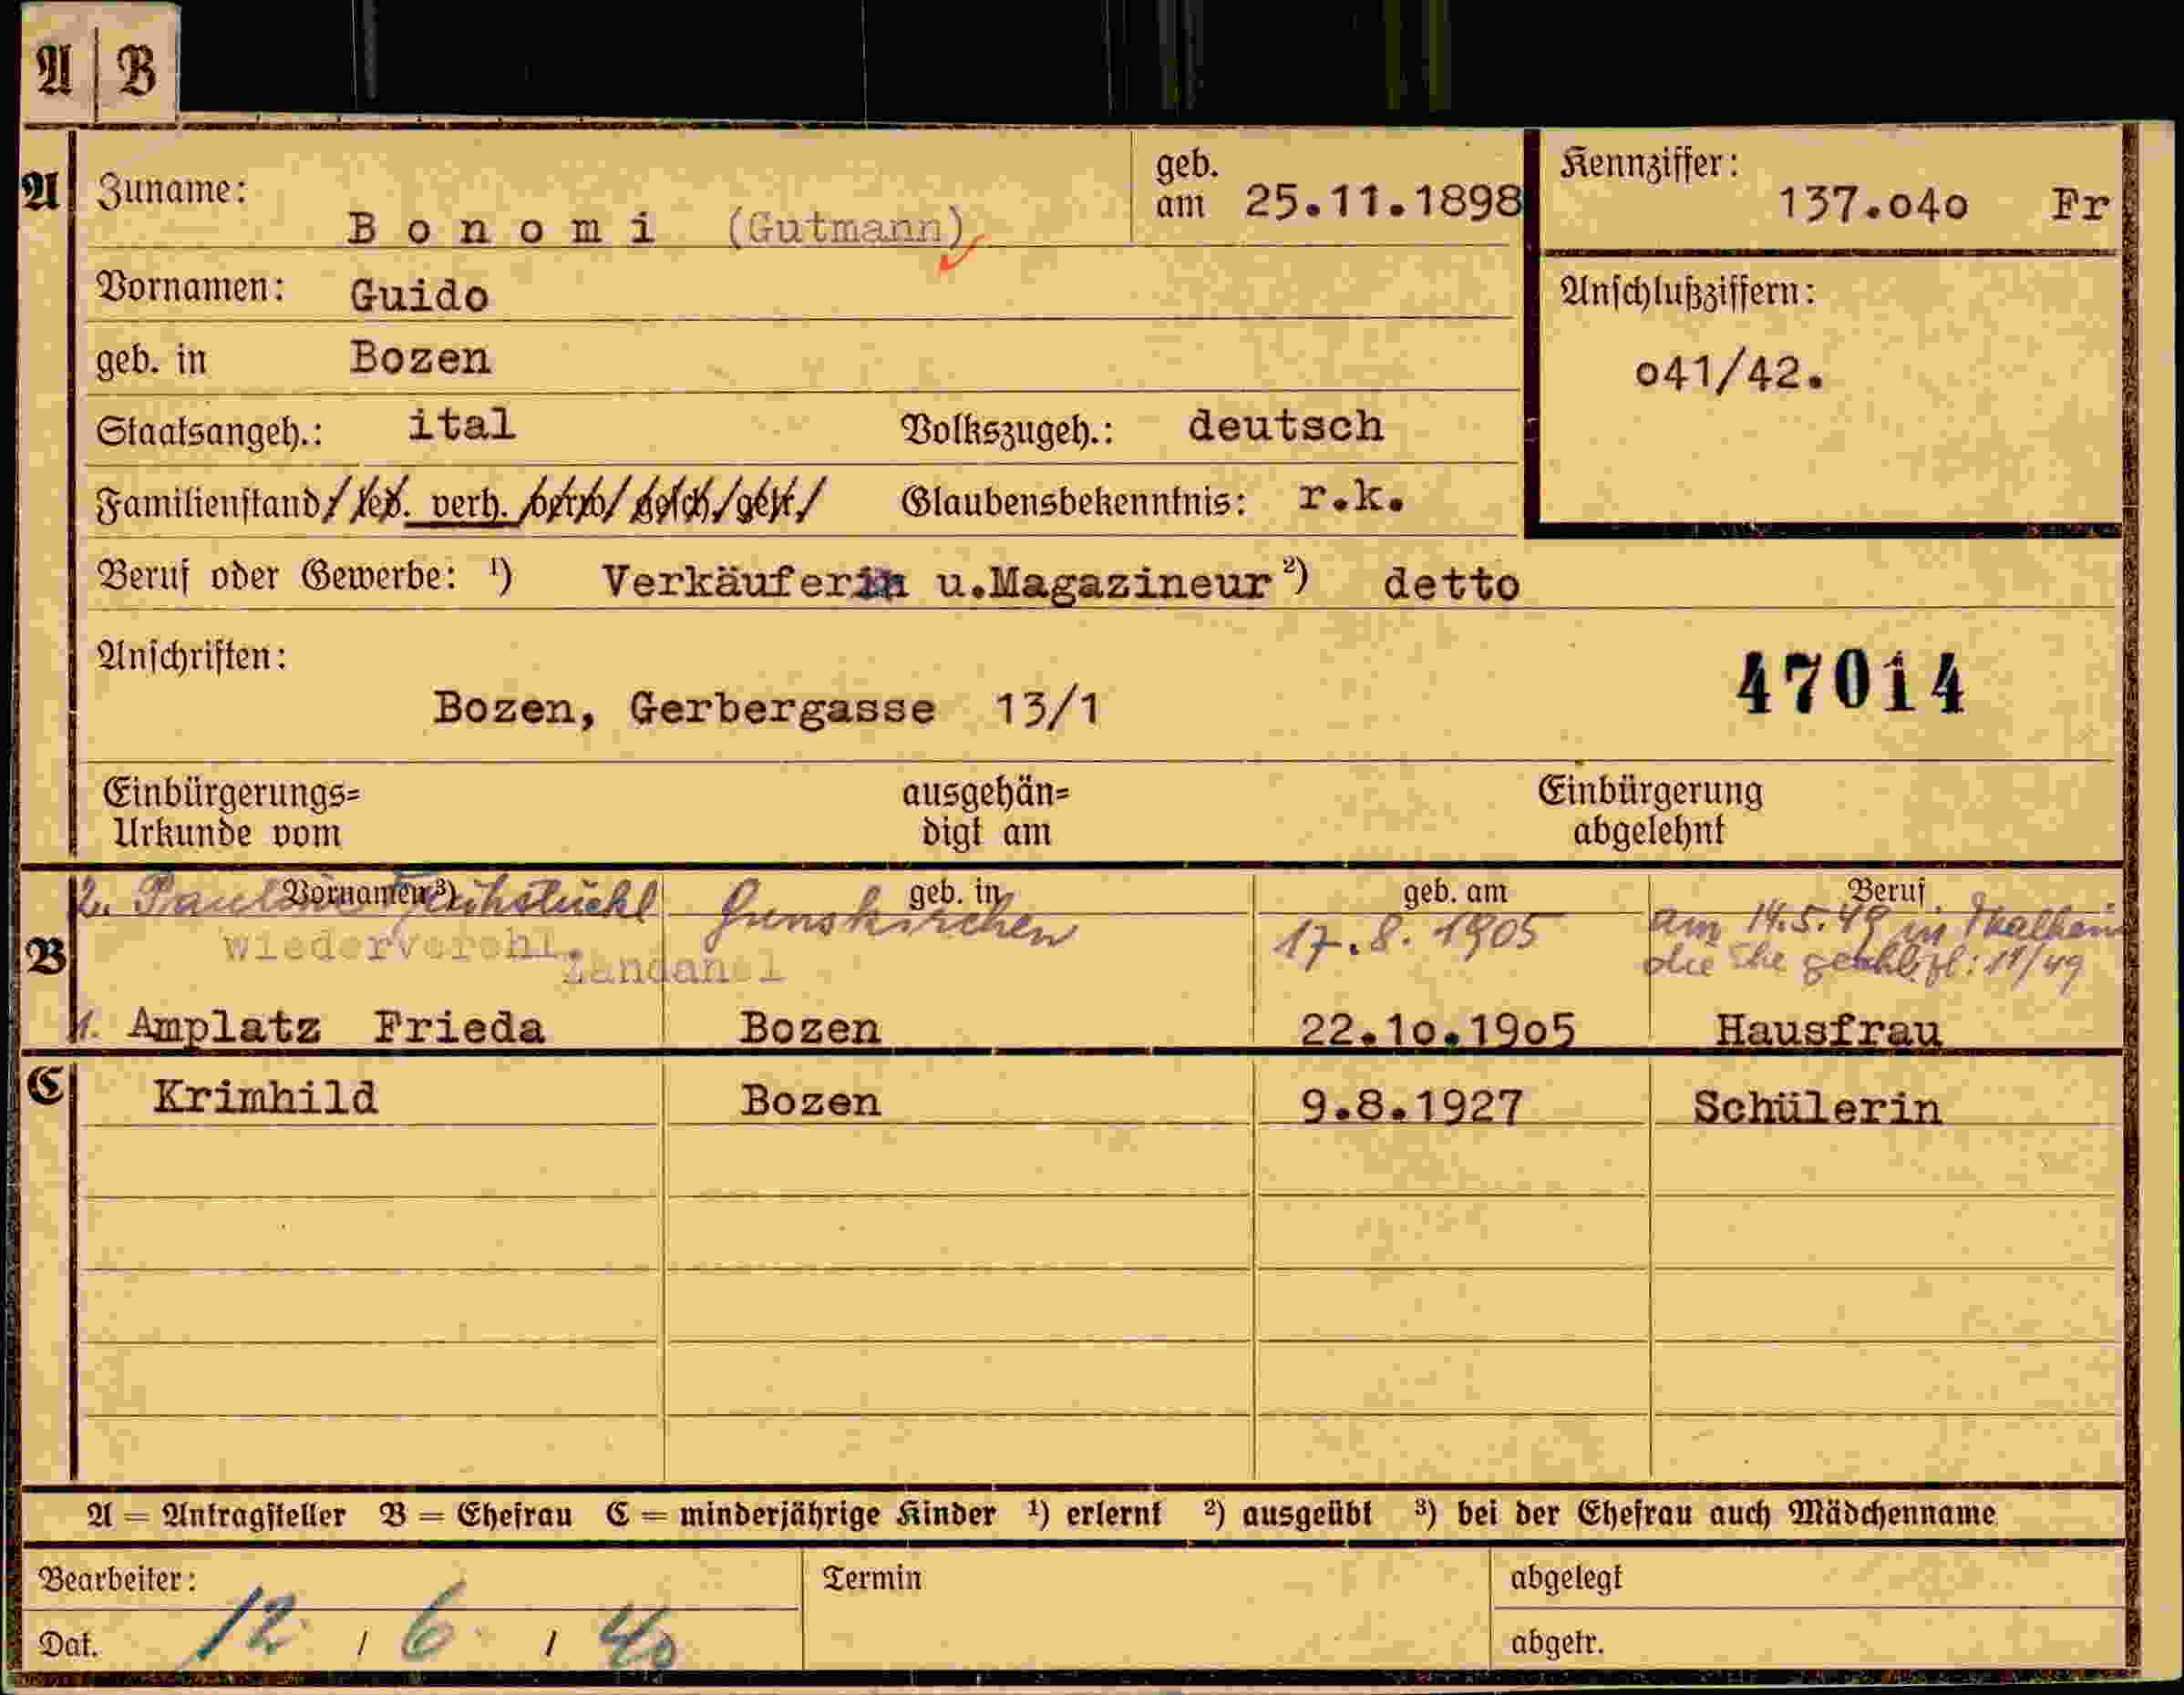 A | B
A Zuname: Bonomi (Gutmann) geb. am 25.11.1898
Kennziffer: 137.o4o Fr
Vornamen: Guido
Anschlußziffern: o41/42.
geb. in Bozen
Staatsangeh.: ital Volkszugeh.: deutsch
Familienstand / led. verh. / / gesch. / / Glaubensbekenntnis: r.k.
Beruf oder Gewerbe: ¹) Verkäuferin u.Magazineur ²) detto
Anschriften:
Bozen, Gerbergasse 13/1
47014
Einbürgerungs= ausgehän= Einbürgerung
Urkunde vom digt am abgelehnt
B Vornamen³) geb. in geb. am Beruf
2. Pauline Gunskirchen 17.8.1905 am 14.5.49 in Thalheim
wiederverehl. die Ehe 11/49
Zandanel
1. Amplatz Frieda Bozen 22.1o.19o5 Hausfrau
C Krimhild Bozen 9.8.1927 Schülerin
A = Antragsteller B = Ehefrau C = minderjährige Kinder ¹) erlernt ²) ausgeübt ³) bei der Ehefrau auch Mädchenname
Bearbeiter: Termin abgelegt
Dat. 12 / 6 / 40 abgetr.